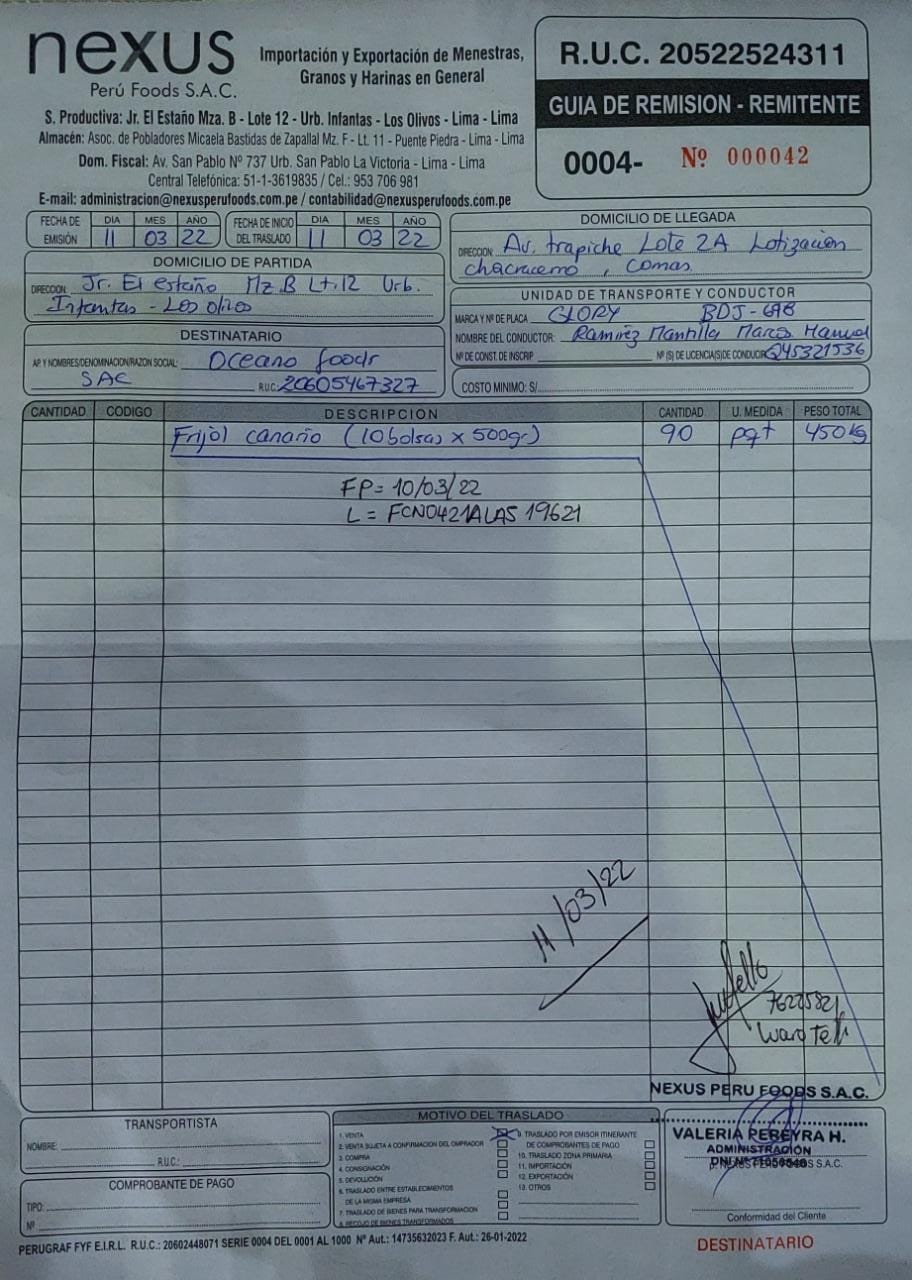 nexus
Perú Foods S.A.C.
Importación y Exportación de Menestras,
Granos y Harinas en General
S. Productiva: Jr. El Estaño Mza. B - Lote 12 - Urb. Infantas - Los Olivos - Lima - Lima
Almacén: Asoc. de Pobladores Micaela Bastidas de Zapallal Mz. F - Lt. 11 - Puente Piedra - Lima - Lima
Dom. Fiscal: Av. San Pablo Nº 737 Urb. San Pablo La Victoria - Lima - Lima
Central Telefónica: 51-1-3619835 / Cel.: 953 706 981
E-mail: administracion@nexusperufoods.com.pe / contabilidad@nexusperufoods.com.pe
R.U.C. 20522524311
GUIA DE REMISION - REMITENTE
0004- Nº 000042
FECHA DE EMISIÓN DIA MES AÑO 11 03 22
FECHA DE INICIO DEL TRASLADO DIA MES AÑO 11 03 22
DOMICILIO DE PARTIDA
DIRECCION: Jr. El estaño Mz.B Lt.12 Urb.
Infantas - Los olivos
DESTINATARIO
AP. Y NOMBRES/DENOMINACION/RAZON SOCIAL: Oceano foods
SAC R.U.C: 20605467327
DOMICILIO DE LLEGADA
DIRECCION: Av. trapiche Lote 2A Lotización
chacracerro, comas
UNIDAD DE TRANSPORTE Y CONDUCTOR
MARCA Y Nº DE PLACA GLORY BDJ-698
NOMBRE DEL CONDUCTOR: Ramirez Mantilla Marco Manuel
Nº DE CONST. DE INSCRIP Nº (S) DE LICENCIA(S)DE CONDUCIR Q45321536
COSTO MINIMO: S/
CANTIDAD CODIGO DESCRIPCION CANTIDAD U. MEDIDA PESO TOTAL
Frijol canario (10 bolsas x 500gr) 90 pqt 450kg
FP= 10/03/22
L= FCN0421ALAS 19621
11/03/22
76225821
NEXUS PERU FOODS S.A.C.
VALERIA PEREYRA H.
ADMINISTRACIÓN
Conformidad del Cliente
TRANSPORTISTA
NOMBRE:
R.U.C.:
COMPROBANTE DE PAGO
TIPO:
Nº
MOTIVO DEL TRASLADO
1. VENTA
2. VENTA SUJETA A CONFIRMACION DEL
3. COMPRA
4. CONSIGNACIÓN
5. DEVOLUCIÓN
6. TRASLADO ENTRE ESTABLECIMIENTOS
DE LA MISMA EMPRESA
7. TRASLADO DE BIENES PARA TRANSFORMACION
8. RECOJO DE BIENES TRANSFORMADOS
9. TRASLADO POR EMISOR ITINERANTE
DE COMPROBANTES DE PAGO
10. TRASLADO ZONA PRIMARIA
11. IMPORTACIÓN
12. EXPORTACIÓN
13. OTROS
PERUGRAF FYF E.I.R.L. R.U.C.: 20602448071 SERIE 0004 DEL 0001 AL 1000 Nº Aut.: 14735632023 F. Aut.: 26-01-2022
DESTINATARIO